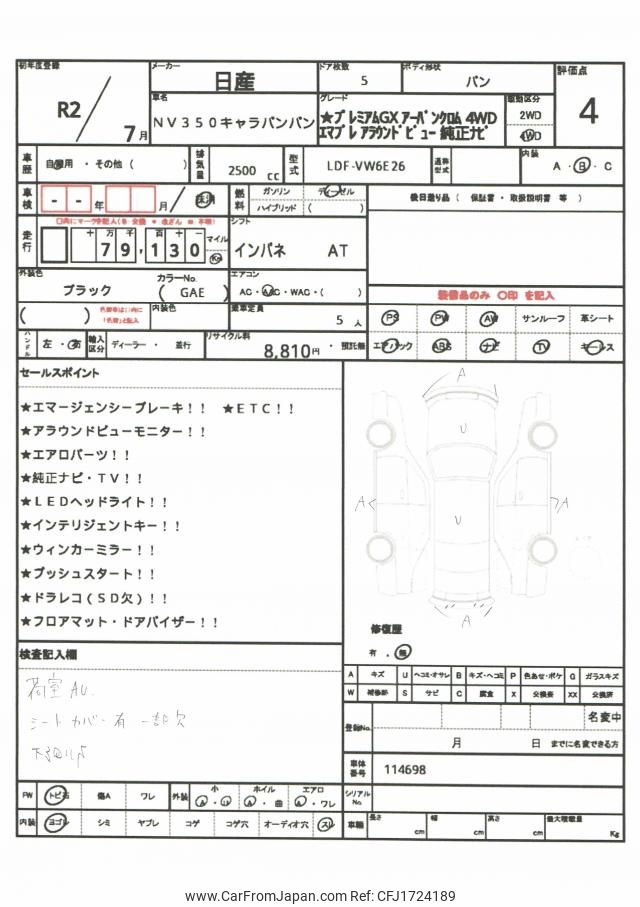 初年度登録
R2
7月
メーカー
日産
ドア枚数
5
ボディ形状
バン
評価点
4
車名
NV350キャラバンバン
グレード
★プレミアムGX アーバンクロム 4WD
エマブレ アラウンドビュー 純正ナビ
駆動区分
2WD
4WD
車歴
自家用 ・ その他 ( )
排気量
2500 cc
型式
LDF-VW6E26
通称型式
内装
A ・ B ・ C
車検
- - 年 月
抹消
燃料
ガソリン
ディーゼル
ハイブリッド
( )
後日送り品 ( 保証書 ・ 取扱説明書 等 )
走行
十 万 千 百 十 一
79,130
マイル
Km
シフト
インパネ AT
外装色
ブラック
カラーNo.
( GAE )
エアコン
AC ・ AAC ・ WAC ・ ( )
装備品のみ 〇印 を記入
( )
内装色
乗車定員
5 人
PS PW AW サンルーフ 革シート
ハンドル
左 ・ 右
輸入区分
ディーラー ・ 並行
リサイクル料
8,810円 ・ 預託無
エアバック ABS ナビ TV キーレス
セールスポイント
★エマージェンシーブレーキ!! ★ETC!!
★アラウンドビューモニター!!
★エアロパーツ!!
★純正ナビ・TV!!
★LEDヘッドライト!!
★インテリジェントキー!!
★ウィンカーミラー!!
★プッシュスタート!!
★ドラレコ(SD欠)!!
★フロアマット・ドアバイザー!!
A
U
A
A
U
A
修復歴
有 ・ 無
検査記入欄
荷室AU.
シートカバー有 一部欠
A キズ U ヘコミ・オサレ B キズ・ヘコミ P 色あせ・ボケ G ガラスキズ
W 補修跡 S サビ C 腐食 X 交換要 XX 交換済
登録No.
名変中
月 日 までに名変できる方
車体番号
114698
FW トビ石 傷A ワレ 外装 小 A ・ U ホイル A ・ 曲 エアロ A ・ ワレ
シリアルNo.
内装 ヨゴレ シミ ヤブレ コゲ コゲ穴 オーディオ穴 スレ
車輌
長さ cm
幅 cm
高さ cm
最大積載量 Kg
www.CarFromJapan.com Ref: CFJ1724189